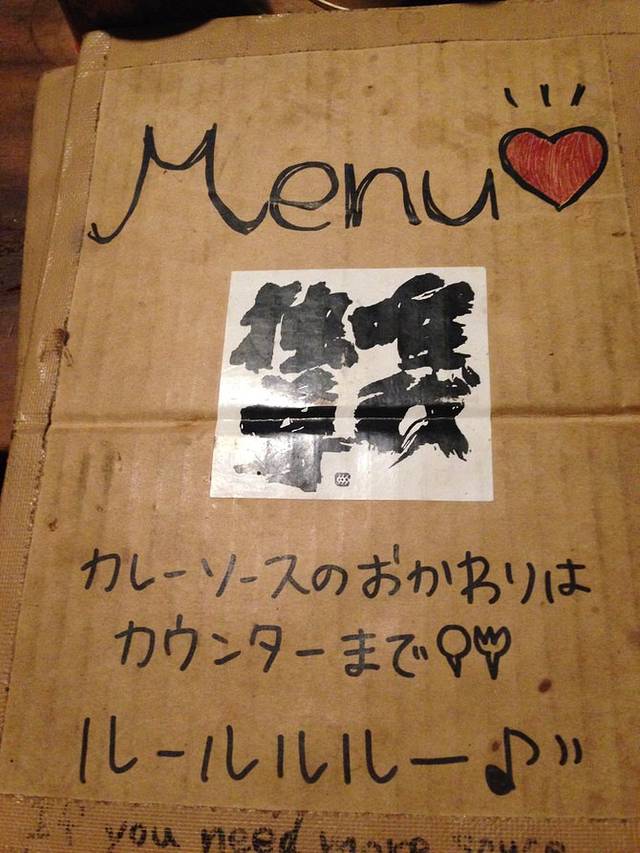 Menu
カレーソースのおかわりは
カウンターまで
ルールルルー♪
If you need more sauce